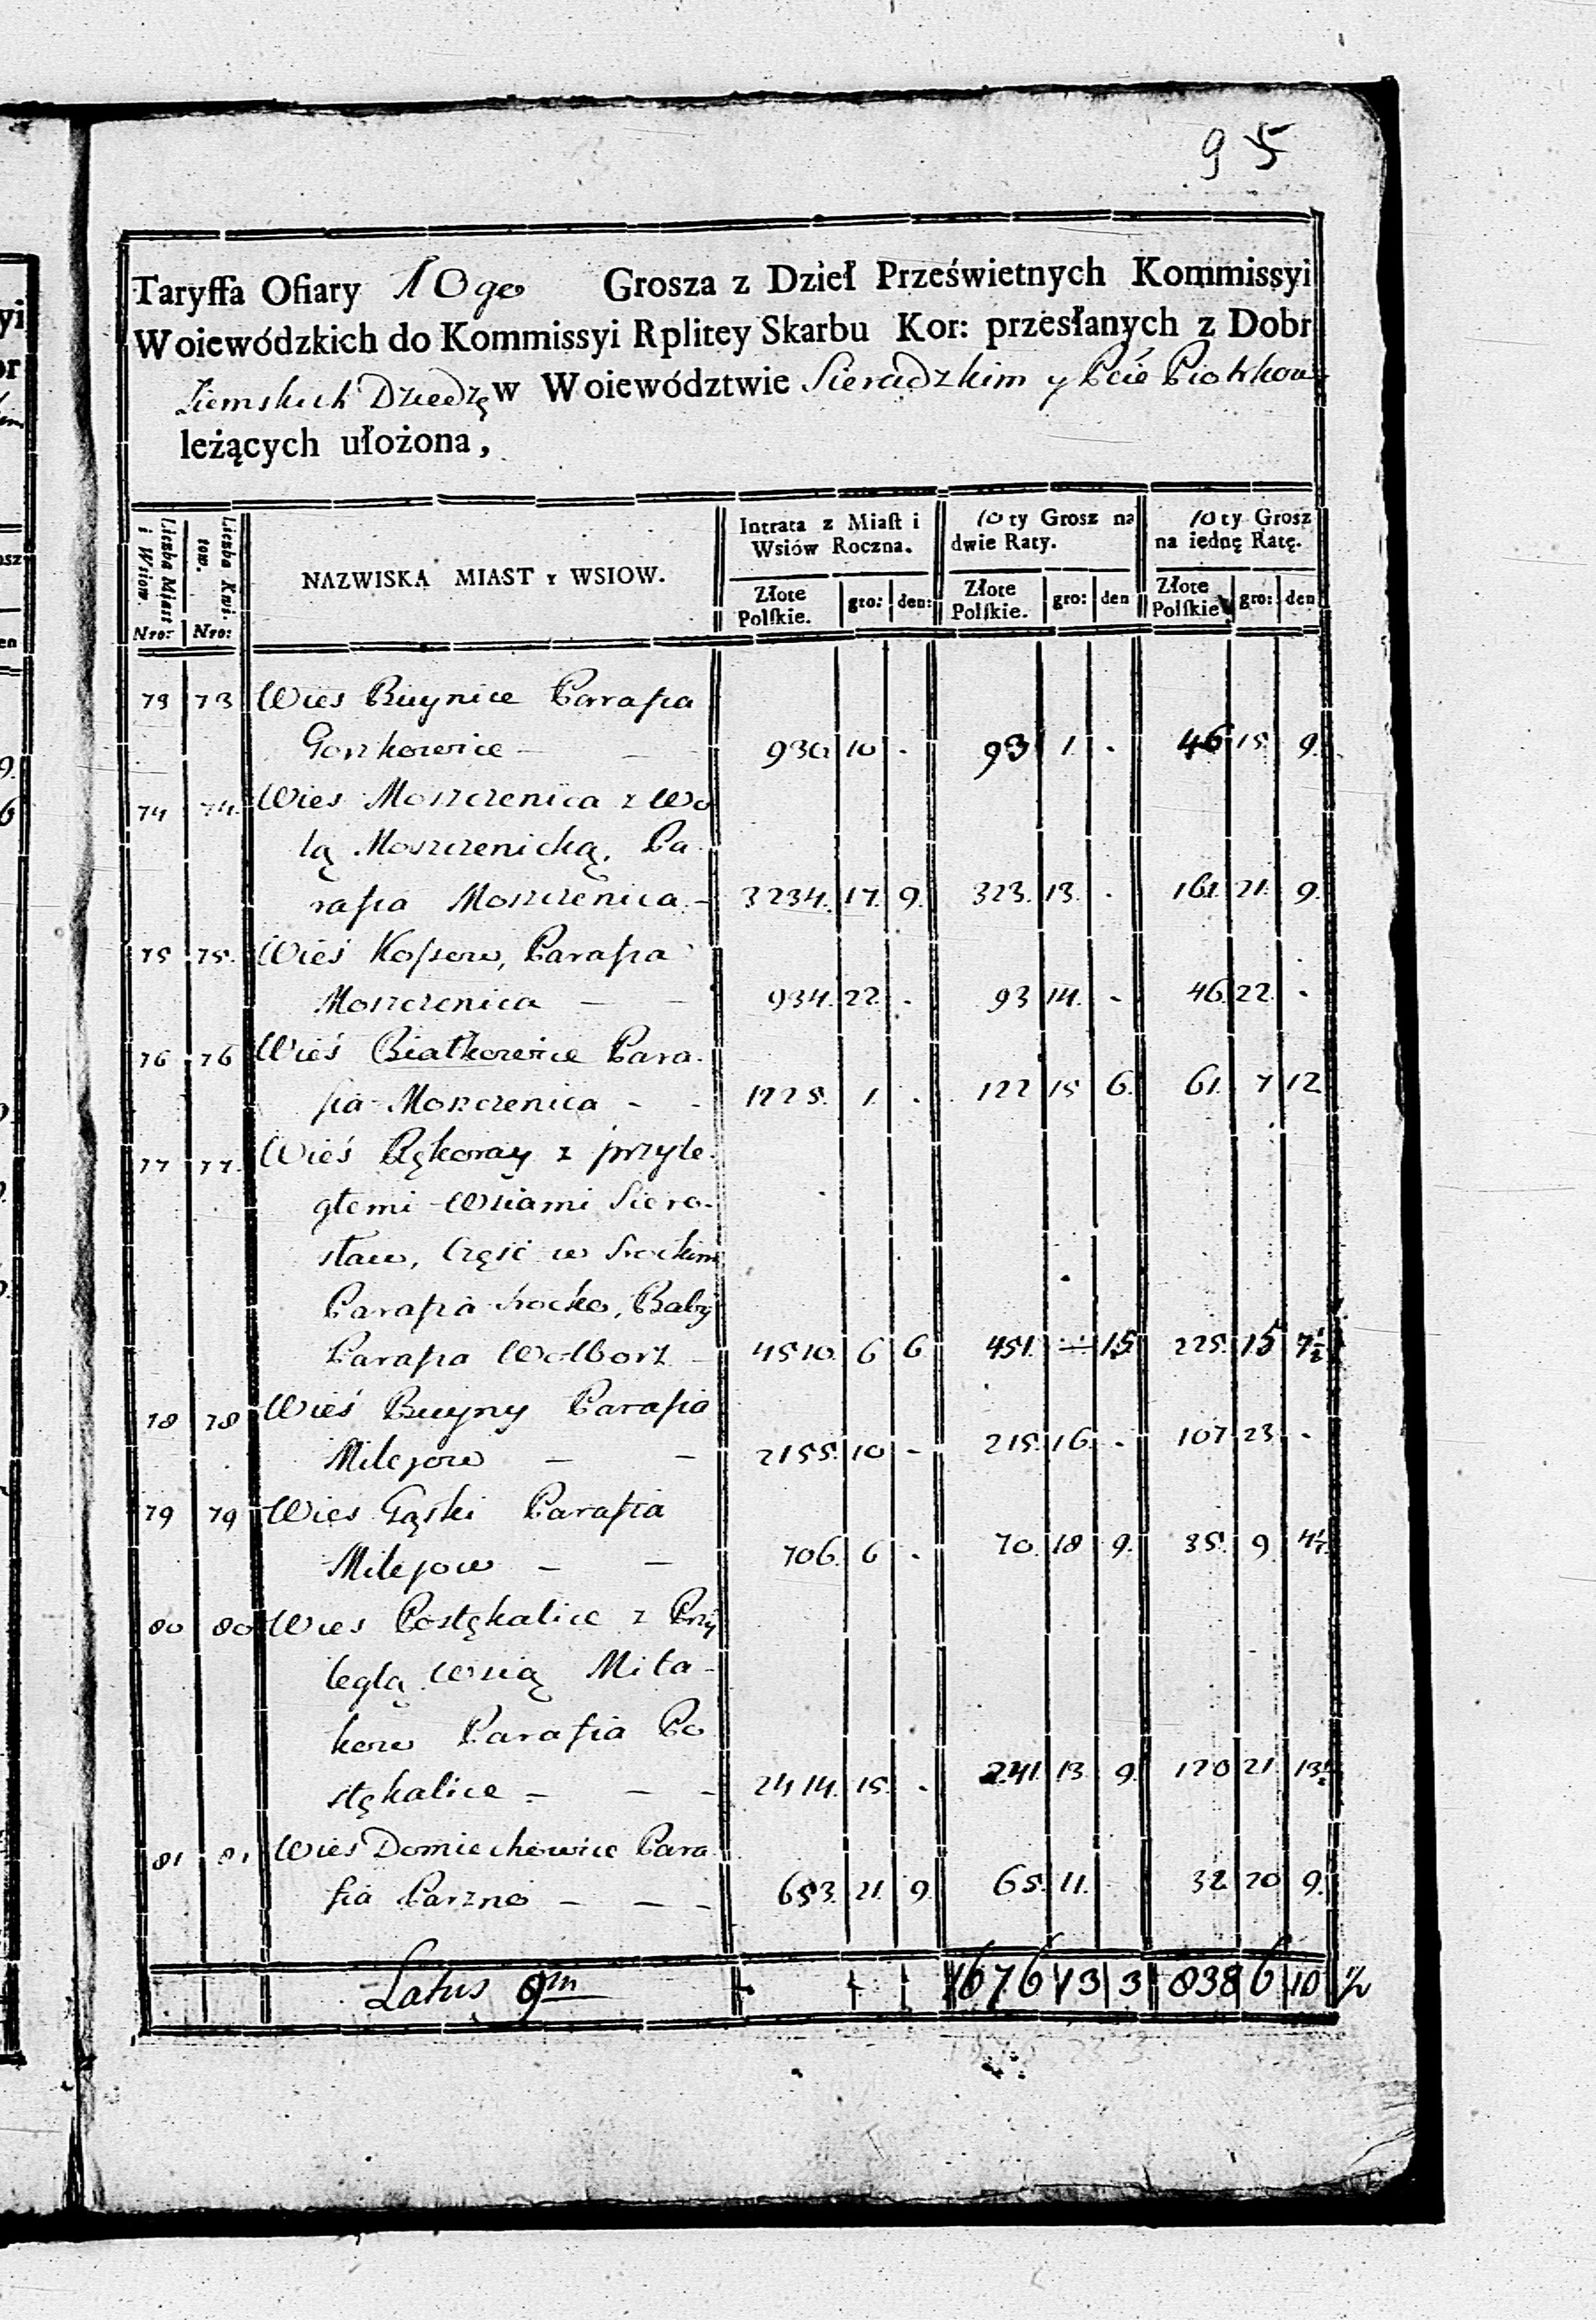 95
Taryffa Ofiary 10go Grosza z Dzieł Prześwietnych Kommissyi
Woiewódzkich do Kommissyi Rplitey Skarbu Kor: przesłanych z Dobr
Ziemskich Dziedzę w Woiewództwie Sieradzkim y Pcie Piotrkow
leżących ułożona,
Liczba Miast i Wsiow. Nro:
Liczba Kwitow. Nro:
NAZWISKA MIAST Y WSIOW.
Intrata z Miast i Wsiów Roczna.
10ty Grosz na dwie Raty.
10ty Grosz na iednę Ratę.
Złote Polskie. gro: den: Złote Polskie. gro: den Złote Polskie gro: den
73 73 Wies Buynice Parafia
Gorzkowice — — 930. 10 - 93 1. - 46 15 9.
74 74. Wies Moszczenica z Wo
lą Moszczenicką, Pa-
rafia Moszczenica. - 3234. 17. 9. 323. 13. - 161. 21. 9.
75 75. Wieś Kossow, Parafia
Moszczenica — — 934. 22. - 93 14. - 46. 22. -
76 76 Wieś Białkowice Para-
fia Moszczenica - - 1225. 1. - 122 15 6. 61. 7 12.
77 77. Wieś Rękoray z przyle-
głemi Wsiami Siero-
sław, Część w Srockim
Parafia Srocko, Baby
Parafia Wolborz - 4510. 6 6 451. — 15 225. 15 7½
78 78 Wieś Buyny Parafia
Milejow — — 2155. 10 - 215. 16. - 107 23 -
79 79 Wies Gąski Parafia
Milejow — — 706. 6 - 70. 18 9. 35. 9 4½
80 80 Wies Postękalice z Przy
ległą Wsią Mila-
kow Parafia Po
stękalice - — - 2414. 15. - 241. 13 9. 120 21. 13½
81 81 Wies Domiechowice Para
fia Parzno — — - 653. 21. 9 65. 11. 32 20 9.
Latus 9m 1676 13 3 838 6 10 ½